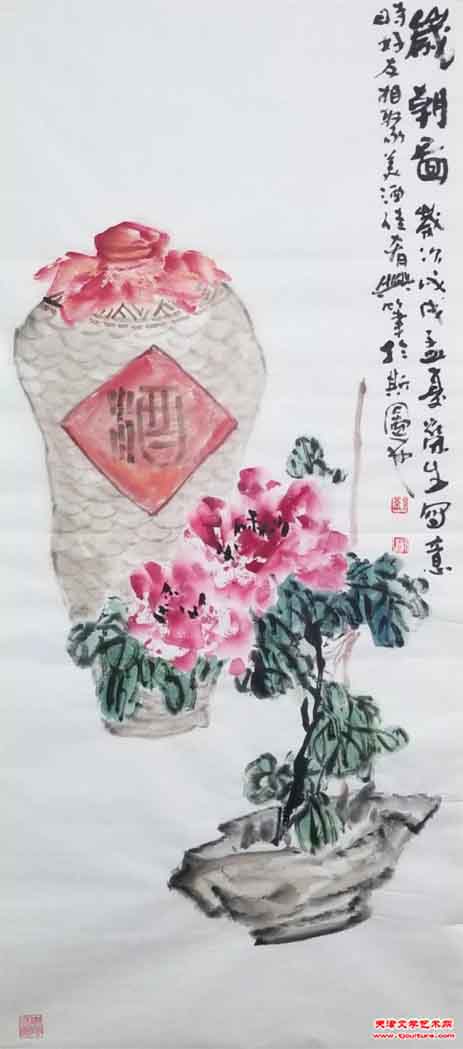 歲朝圖 歲次戊戌孟夏榮生寫意
時好友相聚美酒佳肴興筆於斯圖
酒
天津文学艺术网
www.tjculture.com